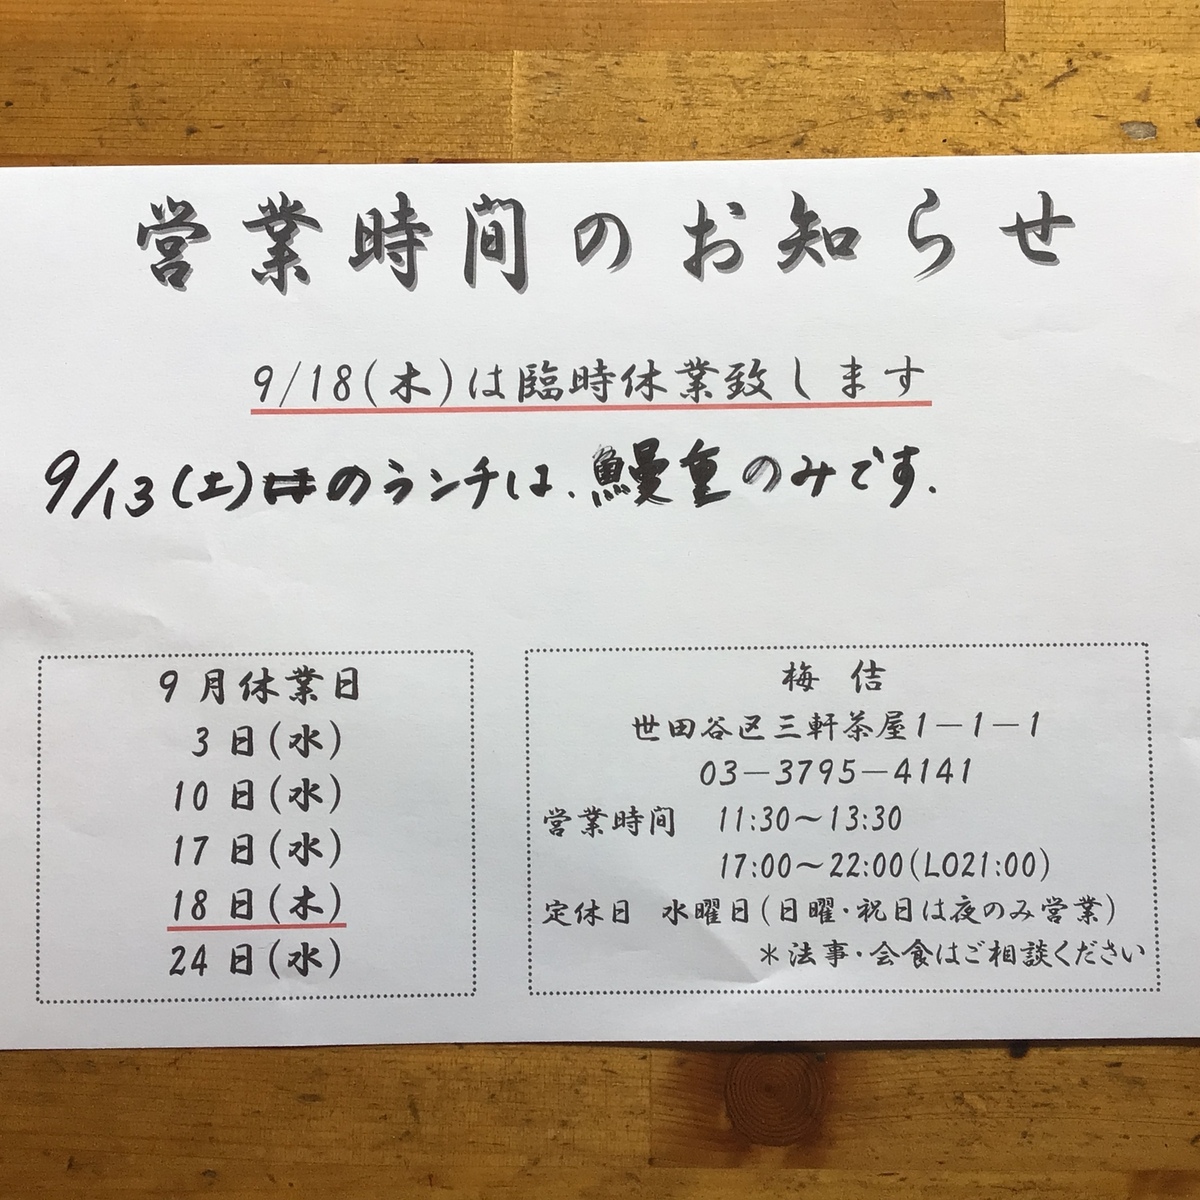 営業時間のお知らせ
9/18(木)は臨時休業致します
9/13(土)のランチは、鰻重のみです.
9月休業日
3日(水)
10日(水)
17日(水)
18日(木)
24日(水)
梅佶
世田谷区三軒茶屋1－1－1
03－3795－4141
営業時間 11:30～13:30
17:00～22:00(LO21:00)
定休日 水曜日(日曜・祝日は夜のみ営業)
＊法事・会食はご相談ください